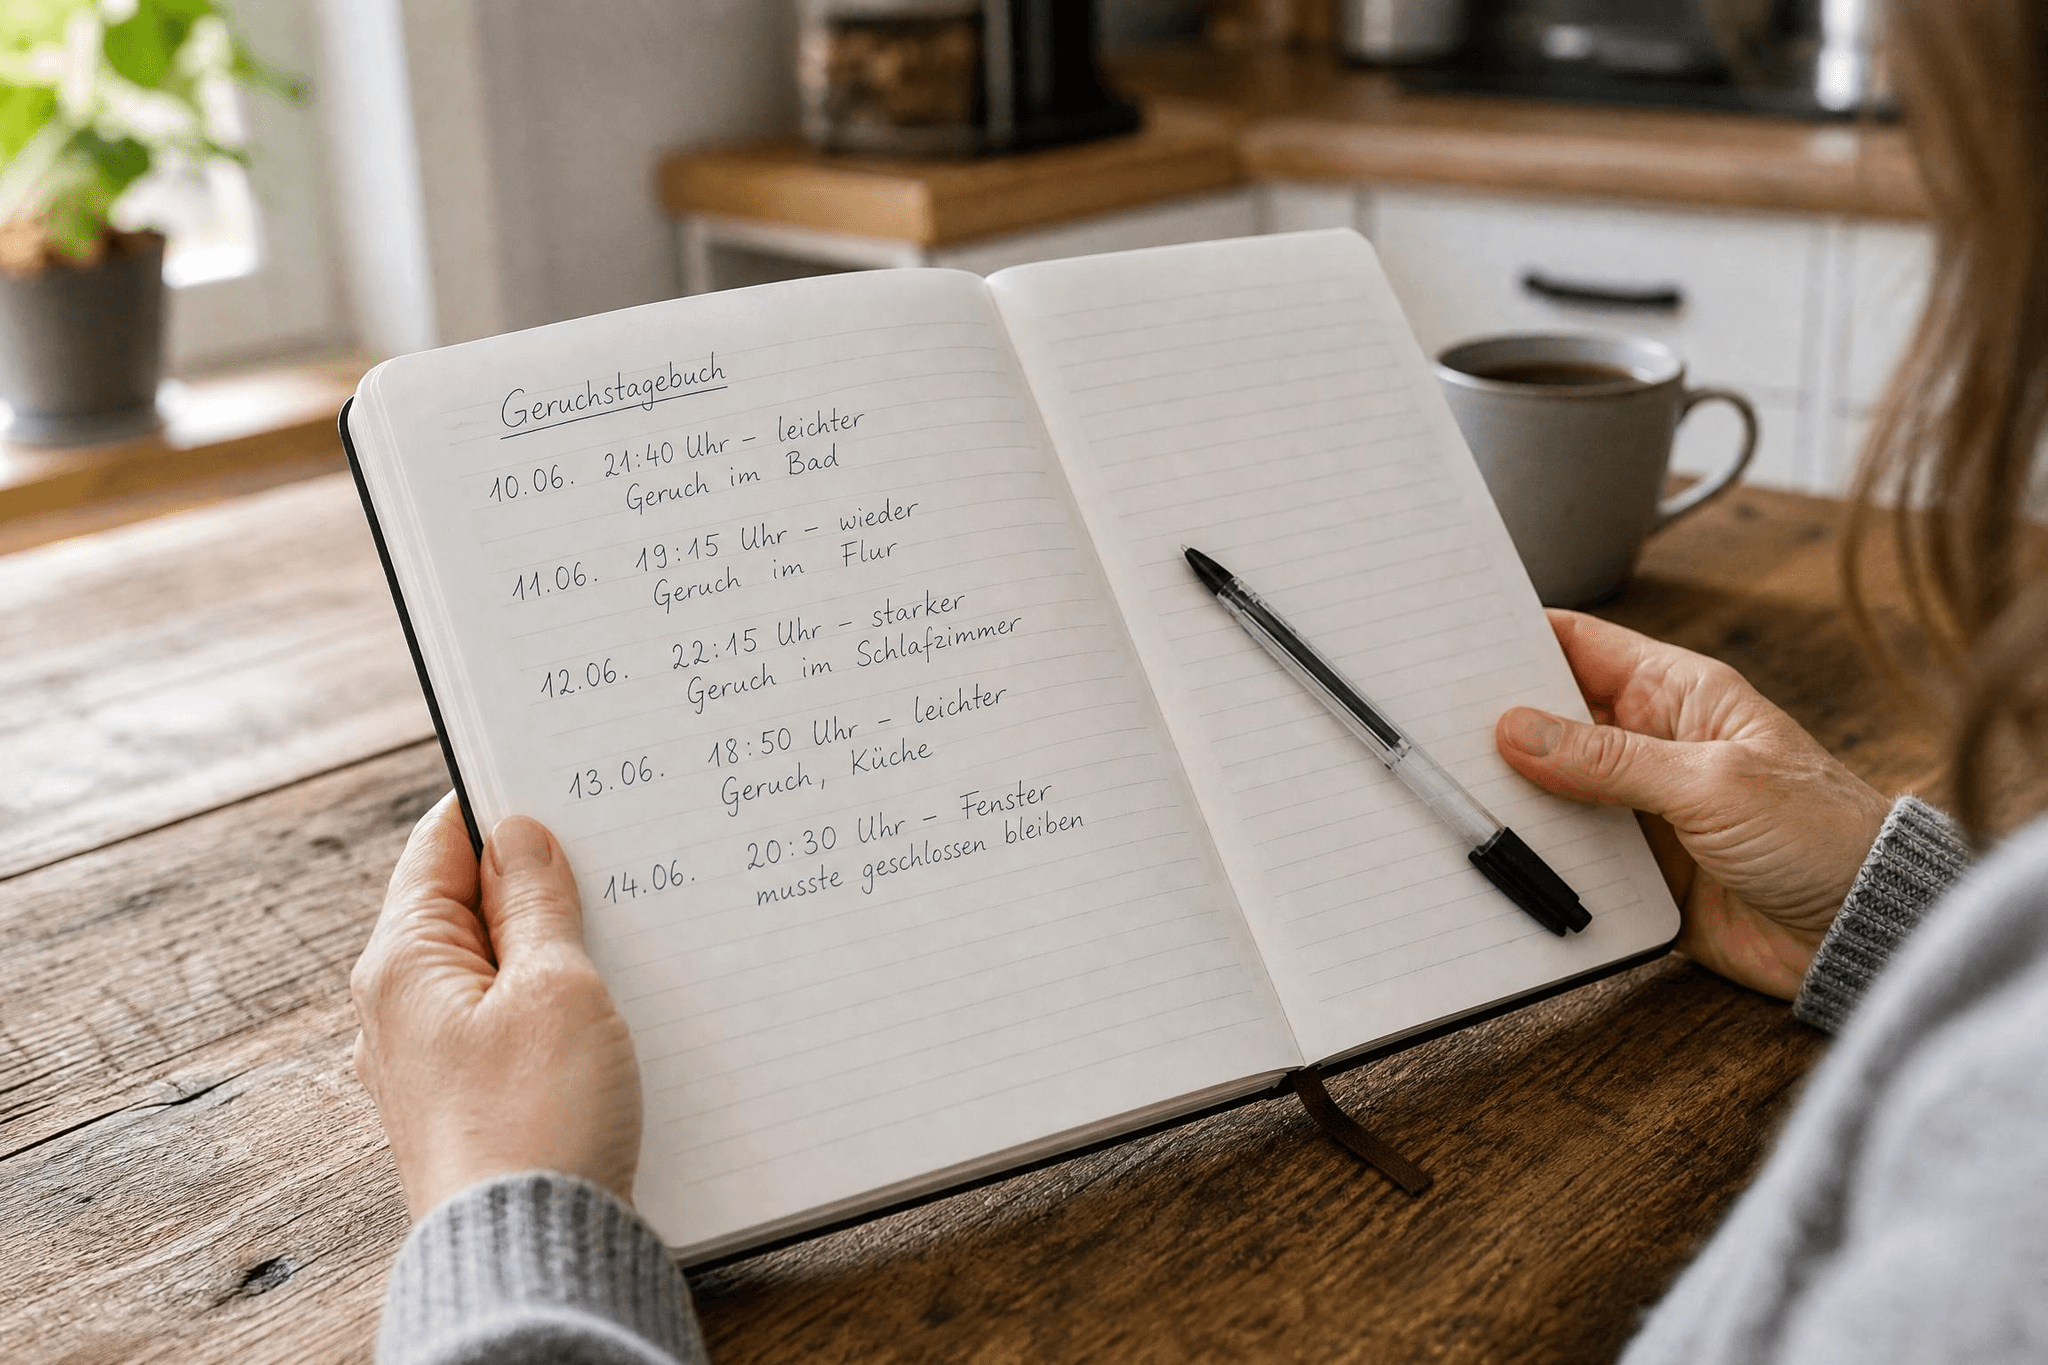 Geruchstagebuch
10.06. 21:40 Uhr – leichter
Geruch im Bad
11.06. 19:15 Uhr – wieder
Geruch im Flur
12.06. 22:15 Uhr – starker
Geruch im Schlafzimmer
13.06. 18:50 Uhr – leichter
Geruch, Küche
14.06. 20:30 Uhr – Fenster
musste geschlossen bleiben